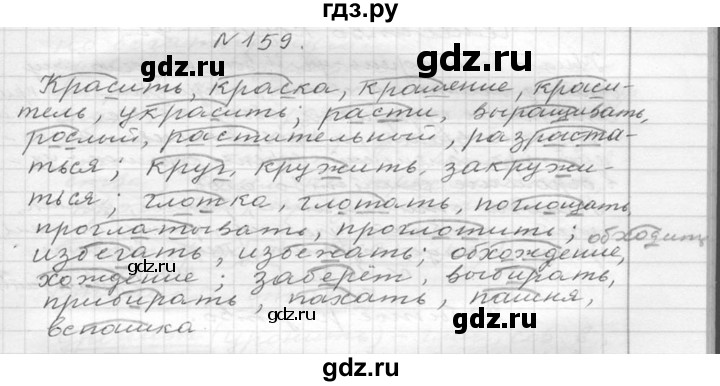 гдз.ру
№159.
Красить, краска, крашение, краси-
тель, украсить; расти, выращивать,
рослый, растительный, разраста-
ться; круг, кружить, закружи-
ться; глотка, глотать, поглощать,
проглатывать, проглотить; обходить
избегать, избежать; обхождение,
хождение; заберёт, выбирать,
прибирать, пахать, пашня,
вспашка.
gdz.ru gdz.ru
gdz.ru gdz.ru
gdz.ru gdz.ru
gdz.ru gdz.ru
gdz.ru